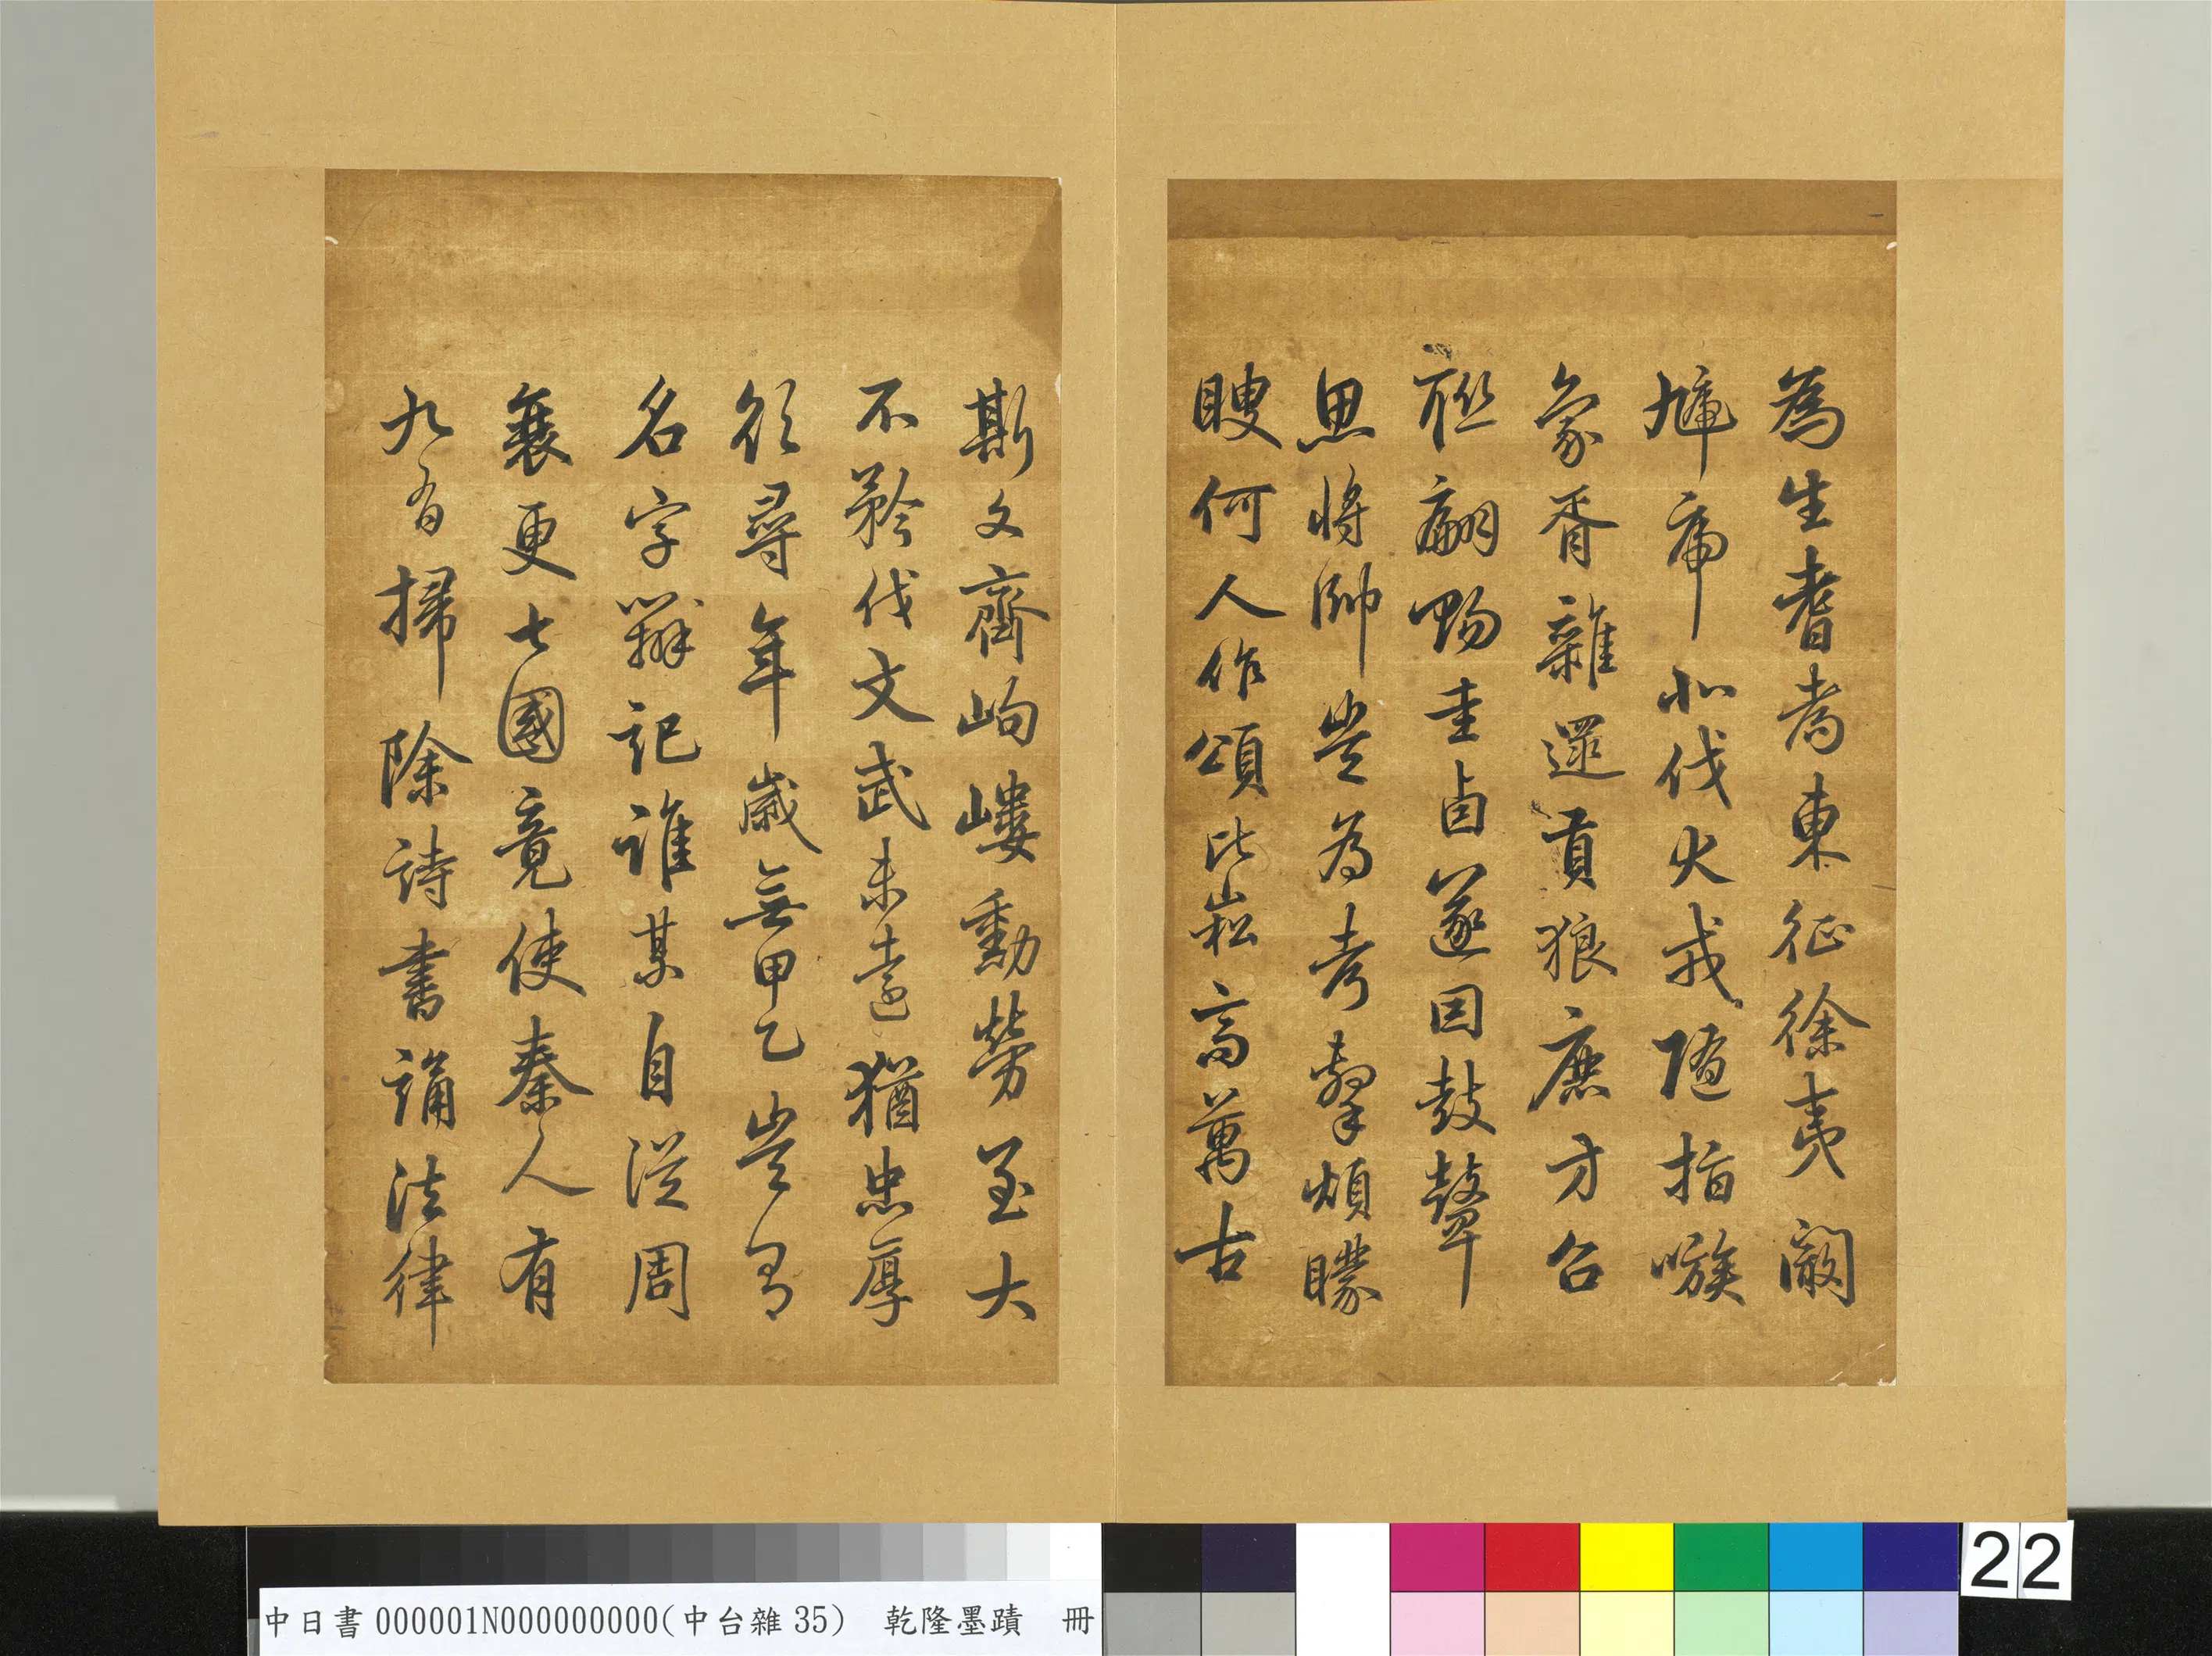 為生耆耇東征徐夷闞
虓虎北伐犬戎隨指嗾
象胥雜遝貢狼鹿方召
聯翩賜圭卣遂因鼓鼙
思將帥豈為考擊煩矇
瞍何人作頌比崧高萬古
斯文齊岣嶁勳勞至大
不矜伐文武未遠猶忠厚
欲尋年歲無甲乙豈有
名字辨記誰某自從周
衰更七國竟使秦人有
九有掃除詩書誦法律
中日書 000001N000000000(中台雜 35) 乾隆墨蹟 冊
22